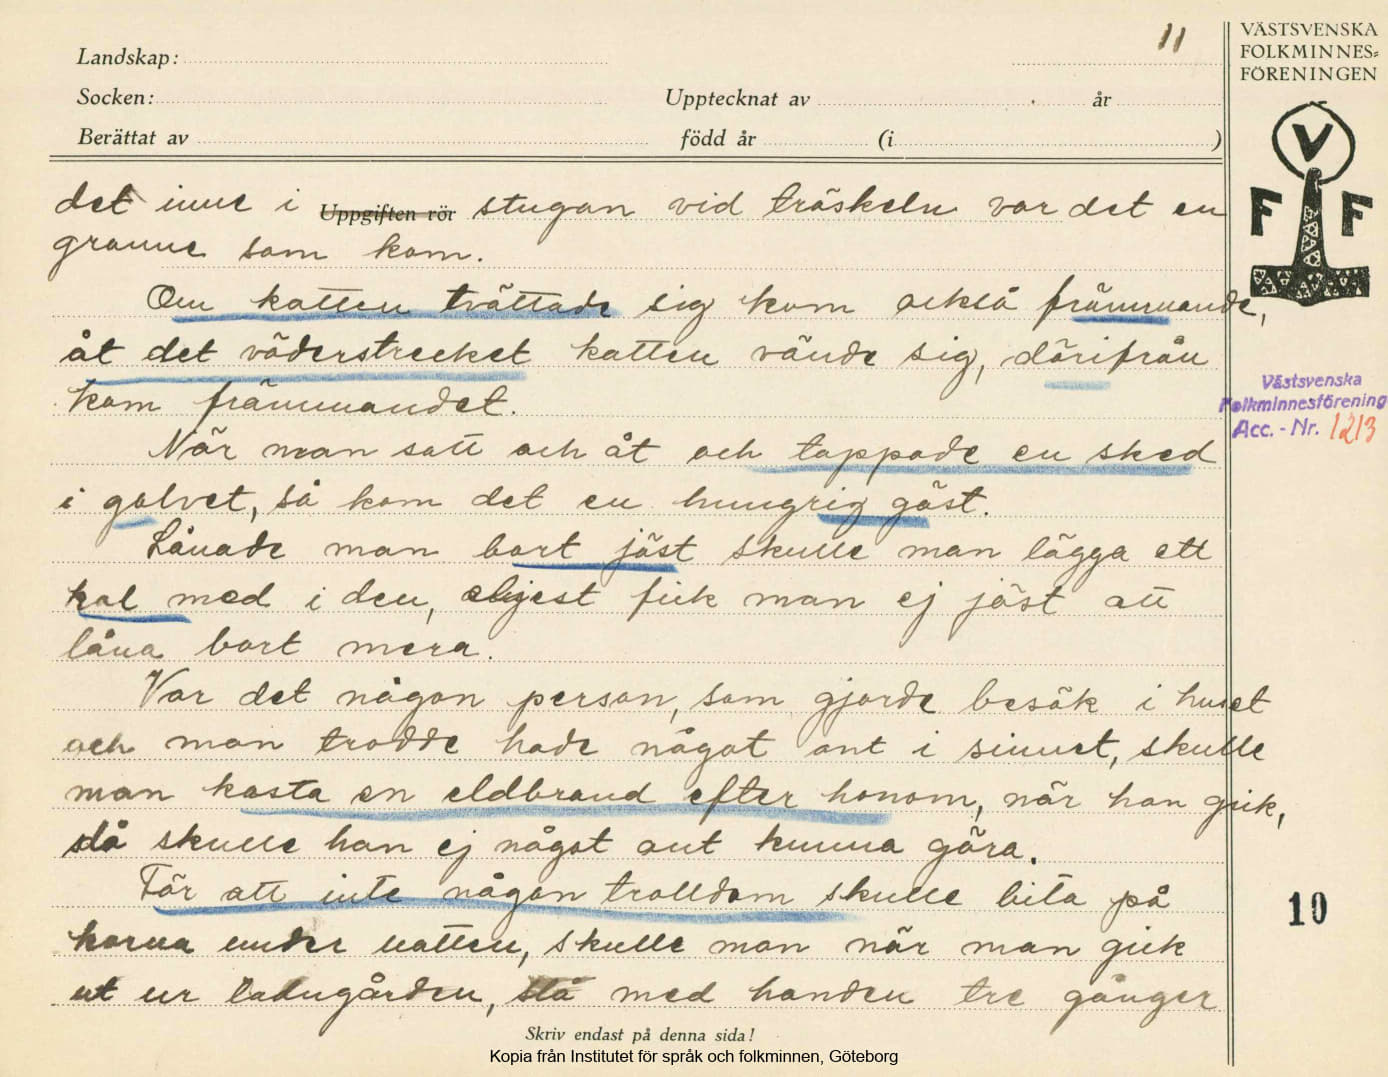 11
VÄSTSVENSKA
FOLKMINNES-
FÖRENINGEN
Landskap:
Socken: Upptecknat av år
Berättat av född år (i )
V
F F
det inne i Uppgiften rör stugan vid träskeln var det en
granne som kom.
Om katten tvättade sig kom också främmande,
åt det väderstrecket katten vände sig, därifrån
kom främmandet.
När man satt och åt och tappade en sked
i golvet, så kom det en hungrig gäst.
Lånade man bort jäst skulle man lägga ett
kol med i den, eljest fick man ej jäst att
låna bort mera.
Var det någon person, som gjorde besök i huset
och man trodde hade något ont i sinnet, skulle
man kasta en eldbrand efter honom, när han gick,
då skulle han ej något ont kunna göra.
För att inte någon trolldom skulle bita på
korna under natten, skulle man när man gick
ut ur ladugården, slå med handen tre gånger
Västsvenska
Folkminnesförening
Acc. - Nr. 1213
10
Skriv endast på denna sida!
Kopia från Institutet för språk och folkminnen, Göteborg